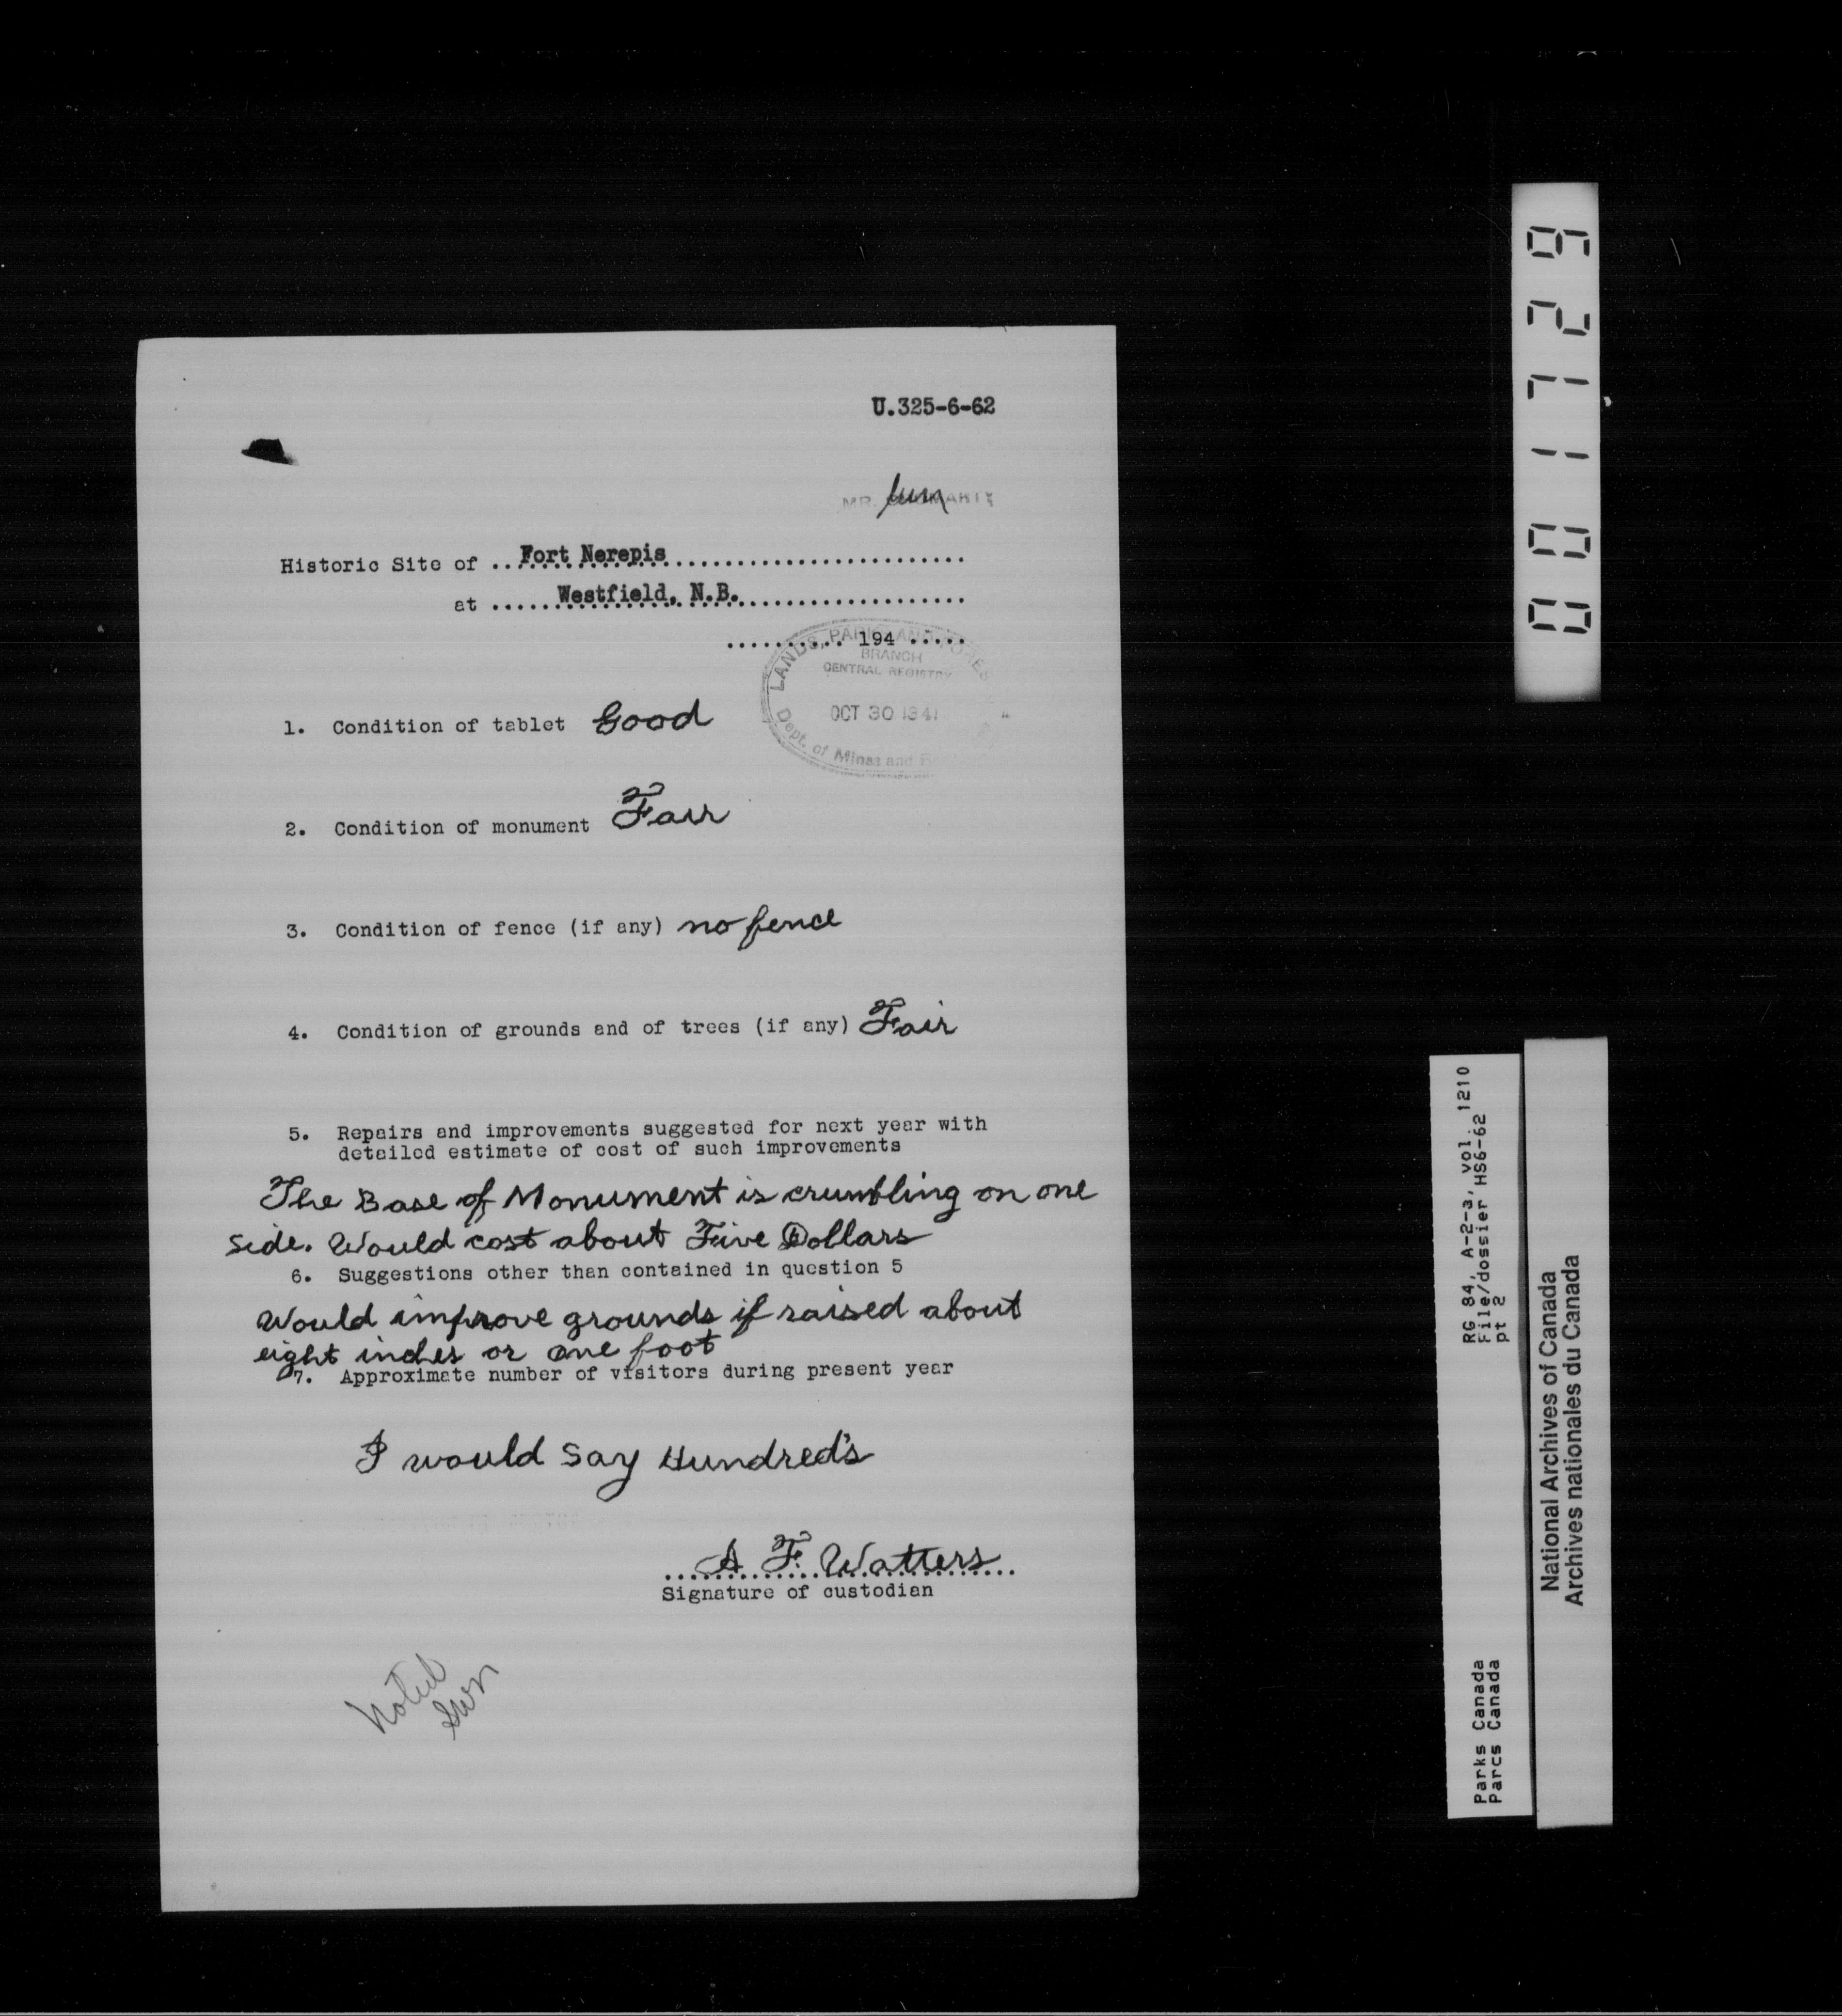 U.325-6-62
MR.
Historic Site of .. Fort Nerepis
at ..... Westfield, N.B.
.......... 194 .....
LANDS, PARKS AND FORES
BRANCH
CENTRAL REGISTRY
OCT 30 1941
Dept. of Mines and
1. Condition of tablet Good
2. Condition of monument Fair
3. Condition of fence (if any) no fence
4. Condition of grounds and of trees (if any) Fair
5. Repairs and improvements suggested for next year with
detailed estimate of cost of such improvements
The Base of Monument is crumbling on one
side. Would cost about Five Dollars
6. Suggestions other than contained in question 5
Would improve grounds if raised about
eight inches or one foot
7. Approximate number of visitors during present year
I would say Hundred's
A. F. Watters
Signature of custodian
Noted
001729
RG 84, A-2-a, vol. 1210
File/dossier HS6-62
pt 2
Parks Canada
Parcs Canada
National Archives of Canada
Archives nationales du Canada